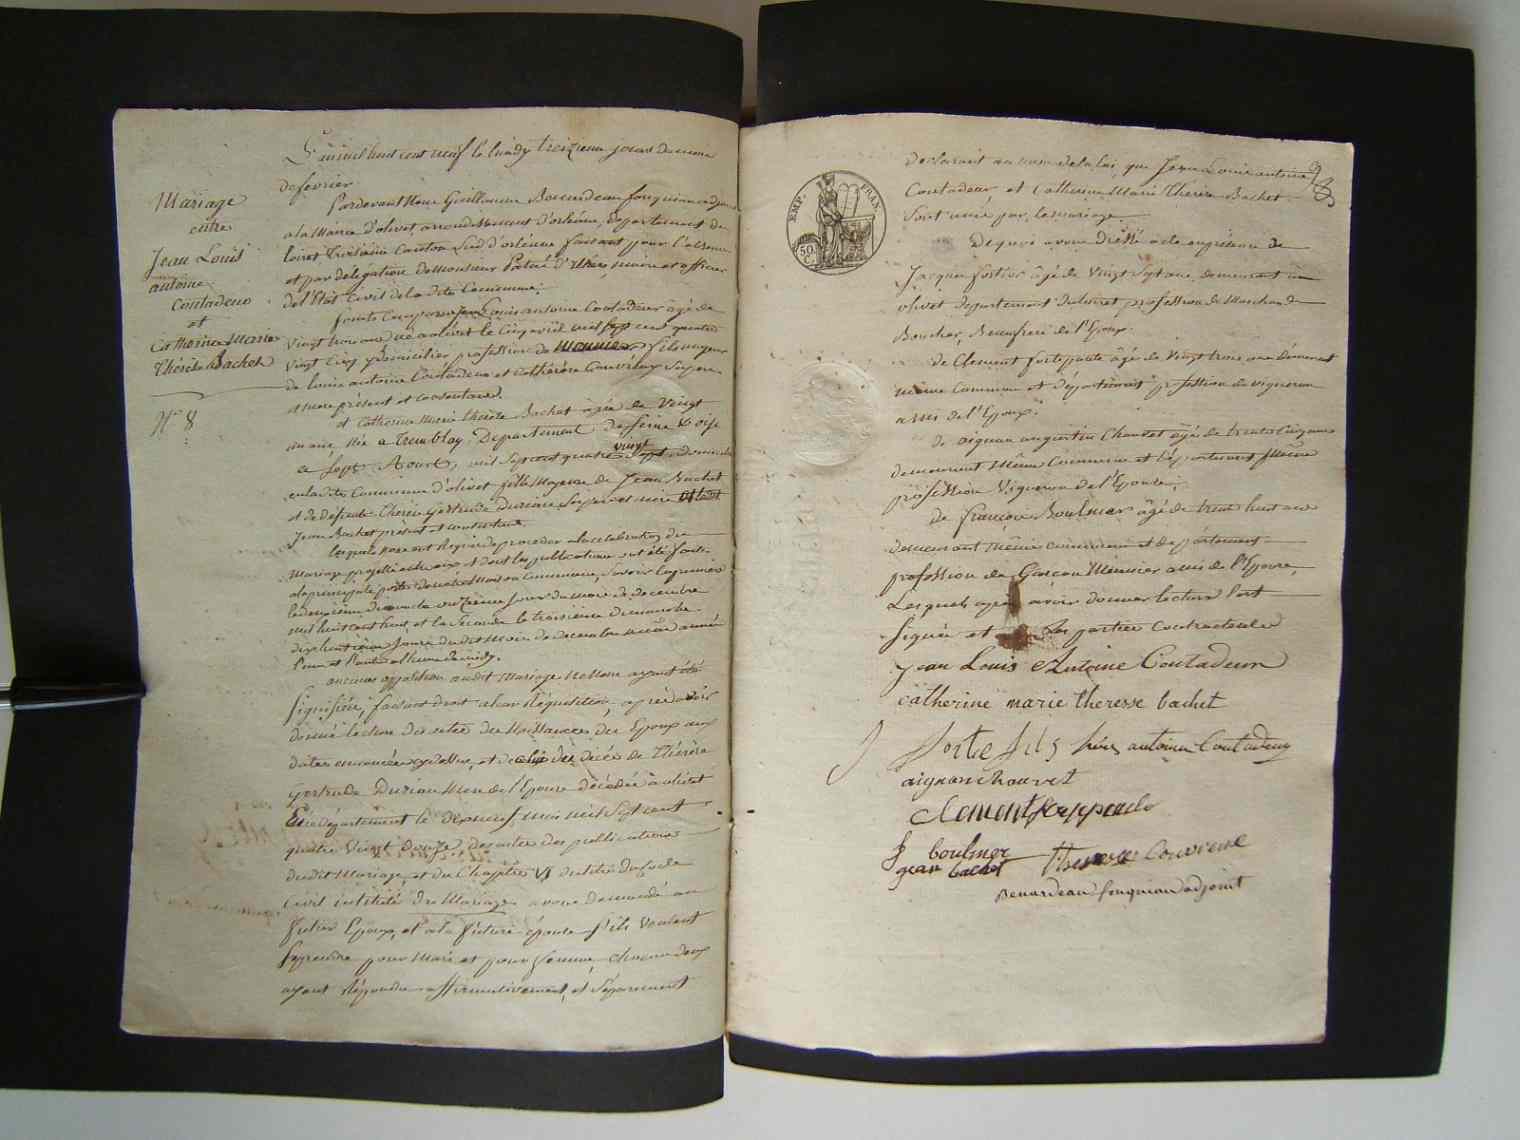 Mariage
entre
Jean Louis
antoine
Coutadeur
et
Catherine Marie
Thérèse Bachet
N° 8
L'an mil huit cent neuf le lundy treizieme jour du mois
de fevrier
Pardevant Nous Guillaume fouquiau adjoint
a la Mairie d'olivet, arrondissement d'orléans, Departement du
loiret Troisieme Canton Sud d'orléans faisant pour l'absence
et par délégation de Monsieur maire et officier
de l'Etat Civil de la dite Commune.
Sont Comparus Jean Louis antoine Coutadeur âgé de
vingt trois ans né a olivet le Cinq avril mil sept cent quatre
vingt Cinq y domicilié profession de Meunier fils majeur
de louis antoine Coutadeur et Catherine ses pere
et mere présent et consentant.
et Catherine Marie therese Bachet agée de Vingt
un ans, Née a Tremblay Departement de Seine & oise
le sept Aoust, mil sept cent quatre vingt sept, domiciliée
en la dite Commune d'olivet fille Majeure de Jean Bachet
et de défunte Therese Gertrude ses pere et mere
Jean Bachet présent et consentant
lesquels nous ont Requis de proceder a la celebration du
Mariage projetté entr'eux et dont les publications ont été faites
a la principale porte de notre Maison Commune, Savoir la premiere
le dimanche onzième jour du mois de decembre
mil huit cent huit, et la Seconde le troisieme dimanche
dix huitième jour du dit Mois de decembre même année
l'une et l'autre a l'heure de midy.
aucune opposition audit Mariage ne Nous ayant été
Signifiée, faisant droit a leur Réquisition, apres avoir
donné lecture des actes de Naissances des Epoux aux
dates énoncées cy dessus, et de celui de décés de Thérèse
gertrude Mere de l'Epouse décédée a olivet
département le dix neuf mai mil Sept cent
quatre Vingt douze, des actes des publications
du dit Mariage, et du Chapitre VI du titre du Code
Civil intitulé du Mariage avons demandé au
futur Epoux, et a la future épouse s'ils veulent
se prendre pour Mari et pour femme, chacun deux
ayant Répondu affirmativement, et Séparément
EMP. FRAN.
50
C.
declarons au nom de la loi, que Jean Louis antoine
Coutadeur et Catherine Marie Therese Bachet
Sont unis par le mariage.
De quoi avons Dréssé acte en présence de
Jacques fortier âgé de Vingt Sept ans demeurant a
olivet departement du loiret profession de Marchand
Boucher, Beaufrere de l'Epoux.
de Clement âgé de Vingt trois ans demeurant
même Commune et département profession de vigneron
ami de l'Epoux.
de aignan augustin Chauvet âgé de trente Cinq ans
demeurant Même Commune et departement Même
profession Vigneron de l'Epouse,
de françois Boulmer âgé de trente huit ans
demeurant même commune et departement
profession de Garcon Meunier ami de l'Epouse,
Lesquels après avoir donner lecture l'ont
Signée et Les parties Contractantes
Jean Louis Antoine Coutadeur
catherine marie theresse bachet
antoine Coutadeur
aignan chauvet
Clement
f boulmer
jean bachet
fouquiau adjoint